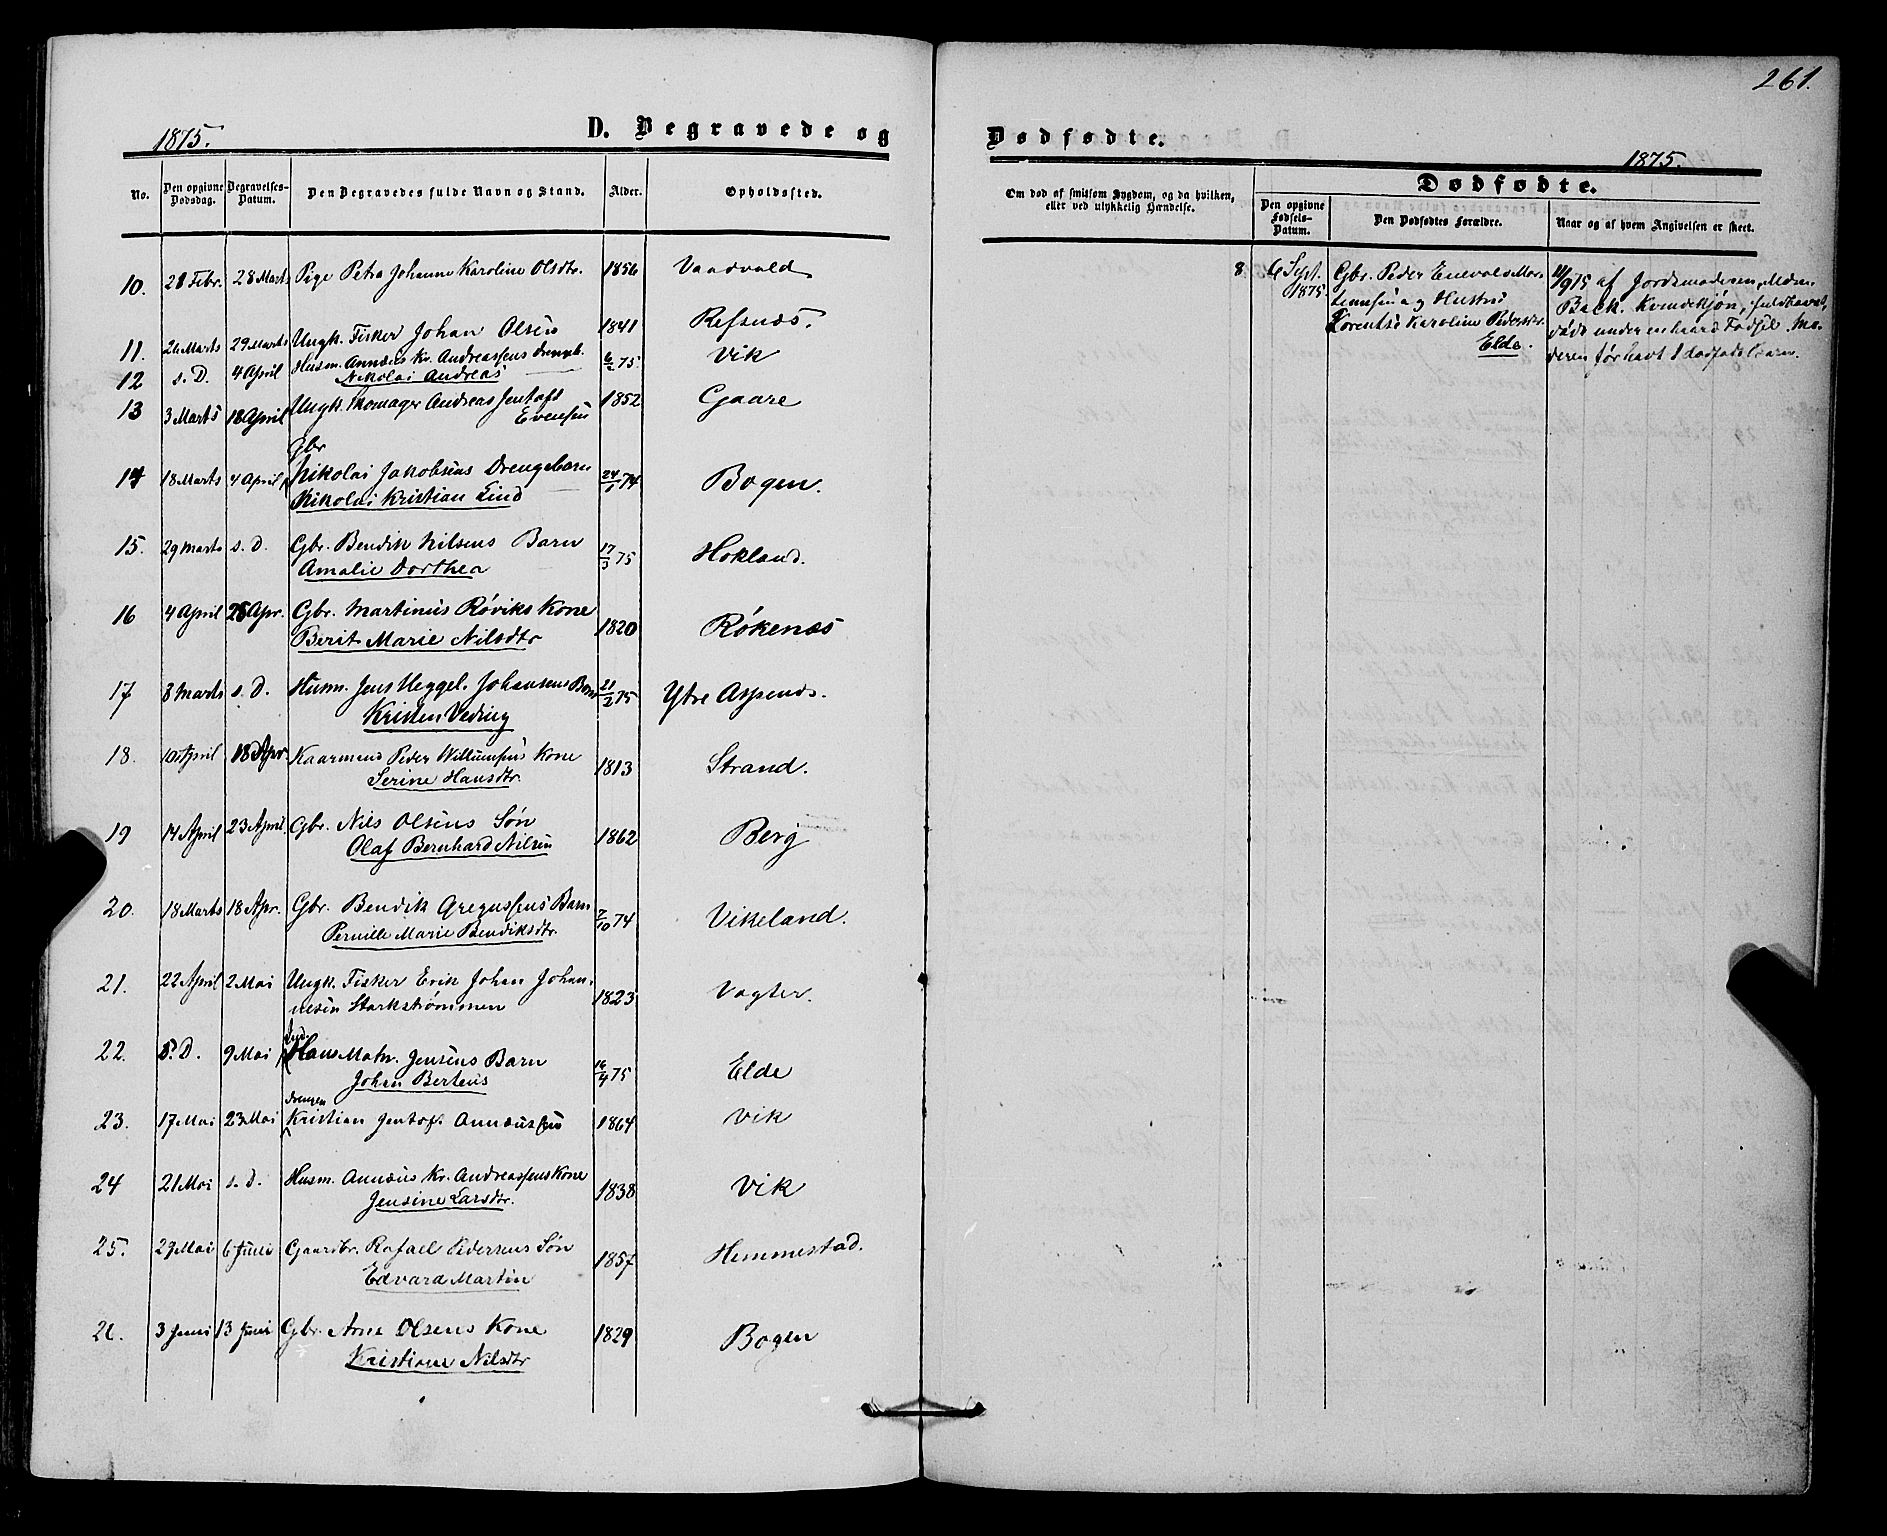 261.
1875. D. Begravede og Dødfødte. 1875.
No. Den opgivne Dødsdag. Begravelses-Datum. Den Begravedes fulde Navn og Stand. Alder. Opholdssted.
Om død af smitsom Sygdom, og da hvilken, eller ved ulykkelig Hændelse.
Dødfødte.
Den opgivne Fødsels-Datum. Den Dødfødtes Forældre. Naar og af hvem Angivelsen er skeet.
10. 28 Febr. 28 Marts Pige Petra Johanne Karoline Olsdtr. 1856 Vaadvold
11. 26 Marts 29 Marts Ungk. Fisker Johan Olsen 1841 Refsnæs.
12 s. D. 4 April Husm. Annæus Kr. Andreassens Drengeb. 6/2 75 Vik
Nikolai Andreas
13 3 Marts 18 April Ungk. Andreas Jentoft 1852 Gaare
Evensen
Gbr
14 18 Marts 4 April Nikolai Jakobsens Drengebarn 74 Bogen.
Nikolai Kristian Lind
15. 29 Marts s. D. Gbr. Bendik Nilsens Barn 17/3 75 Hokland.
Amalie Dorthea
16 4 April 25 Apr. Gbr. Martinus Røviks Kone 1820 Røkenæs
Berit Marie Nilsdtr
17 8 Marts s. D. Husm. Jens Heggel. Johansens Barn 21/2 75 Ytre Aspenæs.
Kristen Vedring
18. 10 April 18 Apr. Kaarmand Peder Willumsens Kone 1813 Strand.
Serine Hansdtr.
19 14 April 23 April Gbr. Nils Olsens Søn 1862 Berg
Olaf Bernhard Nilsen
20. 18 Marts 18 Apr. Gbr. Bendik Gregussens Barn 7/10 74 Vikeland.
Pernille Marie Bendiksdtr.
21. 22 April 2 Mai Ungk. Fisker Erik Johan Johan- 1823 Vogter.
nesen Storkstrømmen
22. s. D. 9 Mai Hans Matn. Jensens Barn 16/4 75 Elde
Johan Berteus
Drengen
23. 17 Mai 23 Mai Kristian Jentoft Annæussen 1864 Vik
24 21 Mai s. D. Husm. Annæus Kr. Andreassens Kone 1838 Vik
Jensine Larsdtr.
25. 29 Mai 6 Juni Gaardbr. Rafael Pedersens Søn 1857 Hemmestad.
Edvard Martin
26. 3 Juni 13 Juni Gbr. Arne Olsens Kone 1829 Bogen
Kristiane Nilsdtr
8. 6 Sept. 1875. Gbr. Peder Enevold Mor-
tensen og Hustru
Lorentse Karoline Pedersdtr.
Elde.
11/9 75 af Jordemoderen,
Back. Kvendekjøn, fuldbaaret,
døde under en haard Fødsel. Mo-
deren før havt 1 dødfødt Barn.